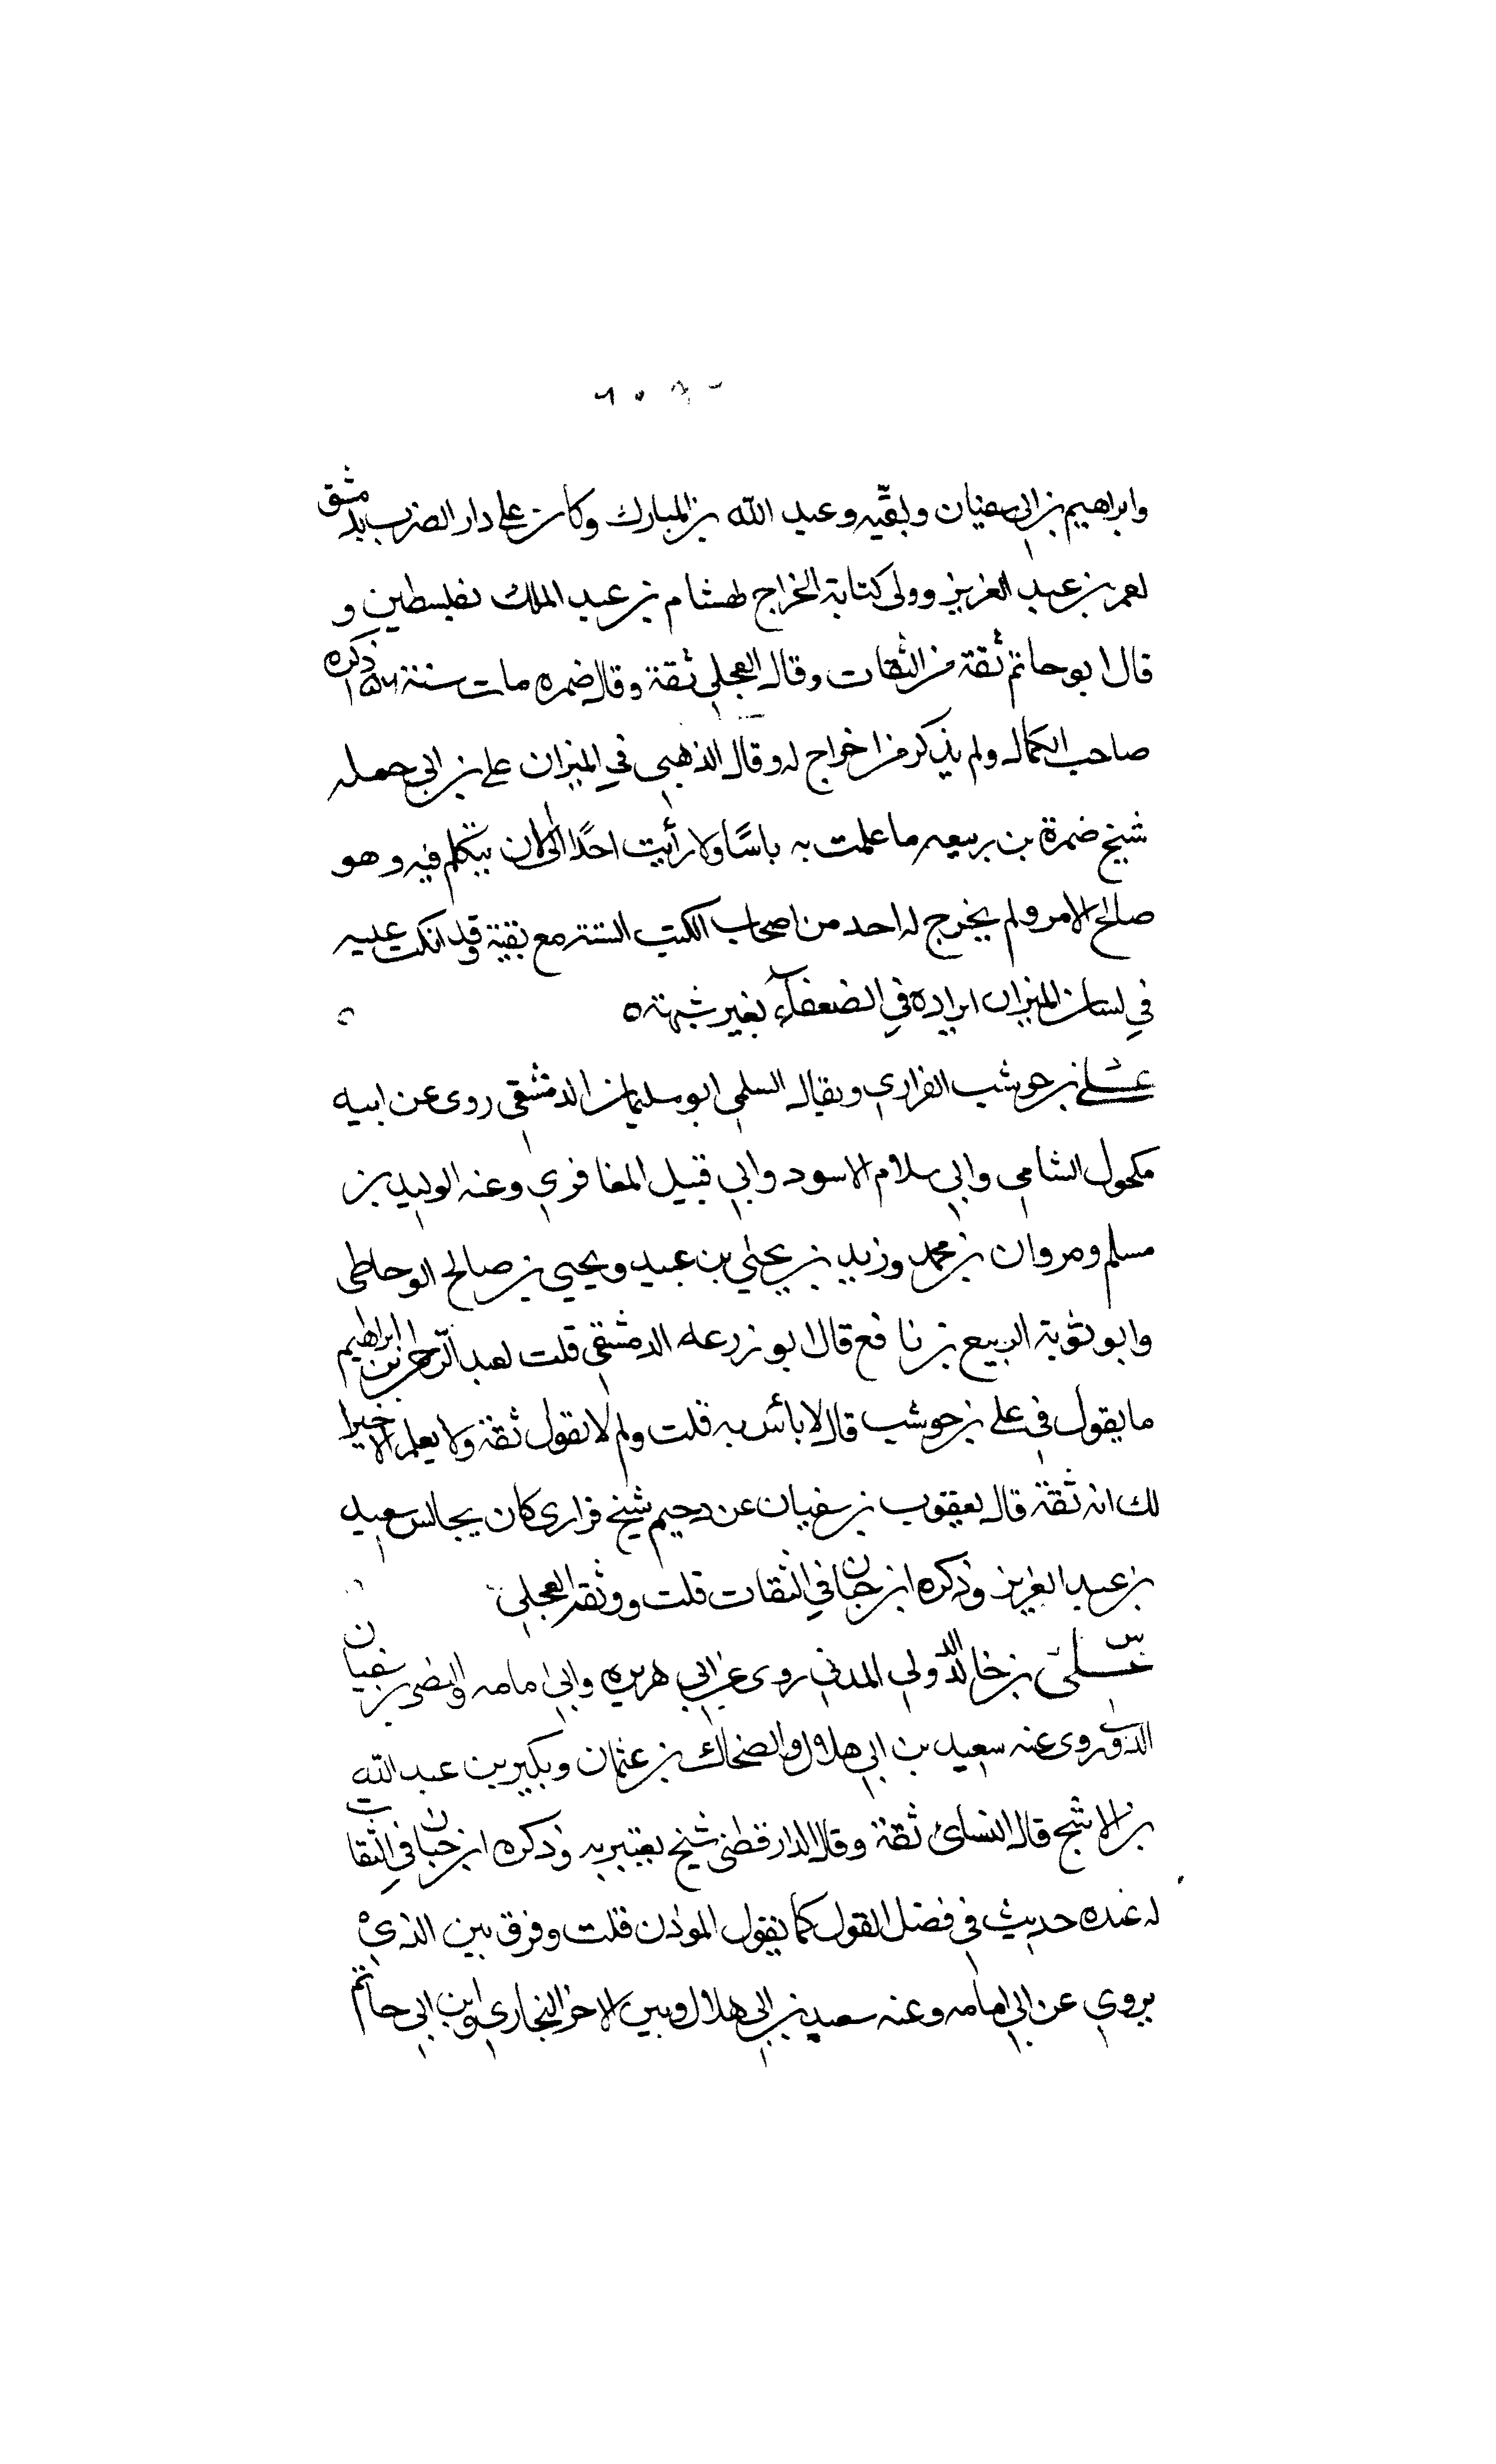 وابراهيم بن ابي سفيان وبقيه وعبد الله بن المبارك وكان على دار الضرب بدمشق
لعمر بن عبد العزيز وولى كتابة الخراج لهشام بن عبد الملك بفلسطين و
قال ابو حاتم ثقة من الثقات وقال العجلي ثقة وقال ضمره مات سنة ١٥٦ ذكره
صاحب الكمال ولم يذكر من اخراج له وقال الذهبي في الميزان على بن ابي حمله
شيخ ضمرة بن ربيعه ما علمت به باسًا ولا رأيت احدًا الى الان يتكلم فيه وهو
صالح الامر ولم يخرج له احد من اصحاب الكتب الستة مع ثقته وقد انكت عليه
في لسان الميزان ايراده في الضعفآء بغير شبهة ه
على بن حوشب الفزاري ويقال السلمي ابو سليمان الدمشقي روى عن ابيه
مكحول الشامي وابي سلام الاسود وابي قبيل المغافري وعنه الوليد بن
مسلم ومروان بن محمد وزيد بن يحيي بن عبيد ويحيى بن صالح الوحاطى
وابو توبة الربيع بن نافع قال ابو زرعه الدمشقي قلت لعبد الرحمن بن ابراهيم
ما يقول في علي بن حوشب قال لا بأس به قلت ولم لا تقول ثقة ولا يعلم الا خيرا
لك انه ثقة قال يعقوب بن سفيان عن دحيم شيخ فزارى كان يجالس سعيد
بن عبد العزيز وذكره ابن حبان في الثقات قلت ووثقه العجلي
س على بن خالد الدولي المدني روى عن ابي هريره وابي امامه والنضر بن سفيان
الدولي روى عنه سعيد بن ابي هلال والضحاك بن عثمان وبكير بن عبد الله
بن الاشج قال النسائ ثقة وقال الدارقطني شيخ يعتبر به وذكره ابن حبان في الثقات
له عنده حديث في فضل القول كما يقول الموذن قلت وفرق بين الذي
يروي عن ابي امامه وعنه سعيد بن ابي هلال وبين الاخر البخاري وابن ابي حاتم